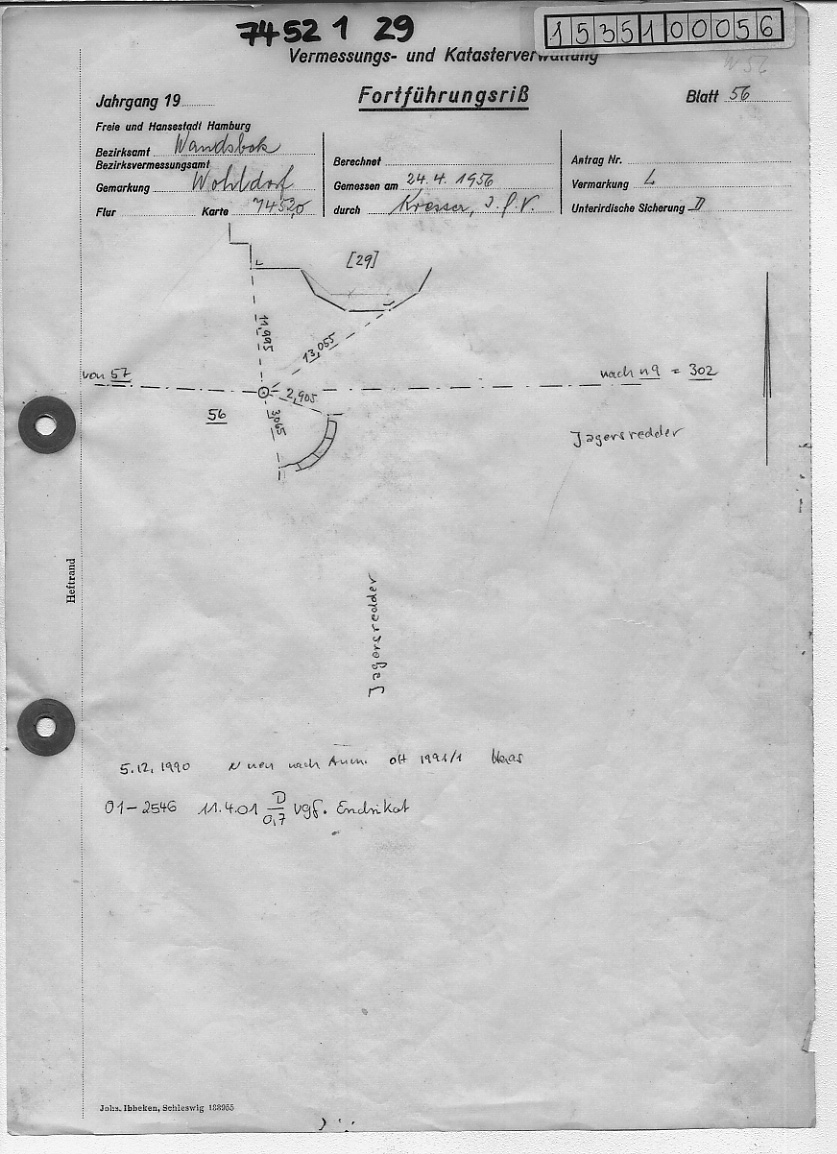 7452 1 29
15351 00056
Vermessungs- und Katasterverwaltung
W 56
Jahrgang 19
Fortführungsriß
Blatt 56
Freie und Hansestadt Hamburg
Bezirksamt Wandsbek
Bezirksvermessungsamt
Gemarkung Wohldorf
Flur Karte 7452,0
Berechnet
Gemessen am 24.4.1956
durch
Antrag Nr.
Vermarkung L
Unterirdische Sicherung D
[29]
11,995
13,055
von 57
nach 119 = 302
2,905
56
3,065
Jagersredder
Heftrand
Jagersredder
5.12.1990 nach
01-2546 11.4.01 D/0,7 vgf. Endrikat
Johs. Ibbeken, Schleswig 188955